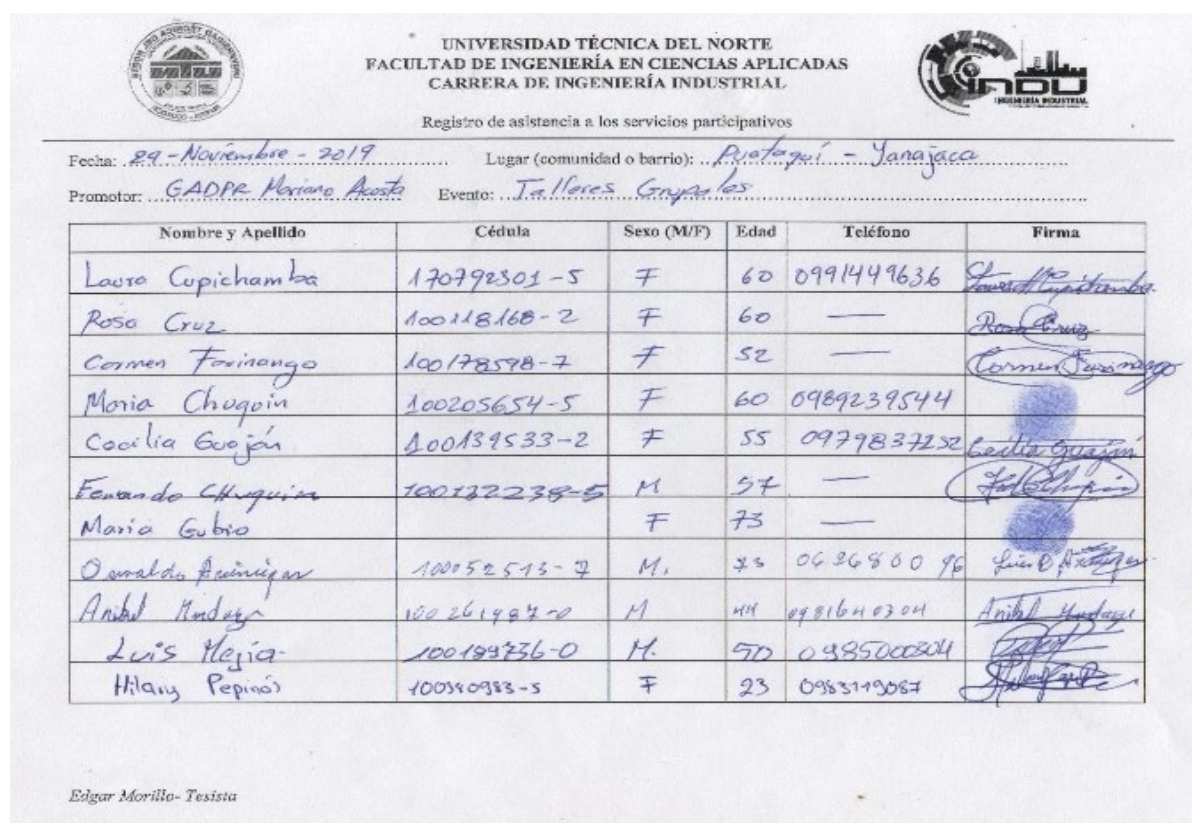 UNIVERSIDAD TÉCNICA DEL NORTE
FACULTAD DE INGENIERÍA EN CIENCIAS APLICADAS
CARRERA DE INGENIERÍA INDUSTRIAL
INDU
INGENIERÍA INDUSTRIAL
Registro de asistencia a los servicios participativos
Fecha: 29 - Noviembre - 2019 Lugar (comunidad o barrio): Puetaquí - Yanajaca
Promotor: GADPR Mariano Acosta Evento: Talleres Grupales
Nombre y Apellido Cédula Sexo (M/F) Edad Teléfono Firma
Laura Cupichamba 170792301-5 F 60 0991449636
Rosa Cruz 100118168-2 F 60 — Rosa Cruz
Carmen Farinango 100178598-7 F 52 — Carmen Farinango
Maria Chuquin 100205654-5 F 60 0989239544
Cecilia Guaján 100139533-2 F 55 0979837252 Cecilia Guaján
Fernando Chuquin 100132238-5 M 57 —
Maria Gubio F 73 —
Oswaldo 100052513- M. 73
Anibal 100261987-0 M 44 0981640304 Anibal
Luis Mejía 100189736-0 M. 50 0985000304
Hilary Pepinós 100340983-5 F 23 0983119087
Edgar Morillo- Tesista